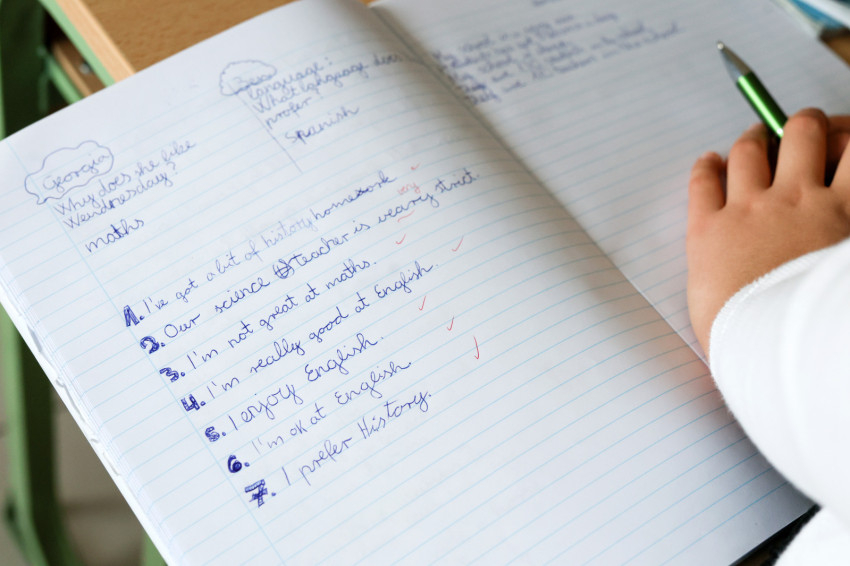 Georgia
Why does she like
Wendnesday?
maths
language?
What language does
profer?
Spanish
1. I've got a bit of history homework
very
2. Our science teacher is weary strict.
3. I'm not great at maths.
4. I'm really good at English.
5. I enjoy English.
6. I'm ok at English.
7. I prefer History.